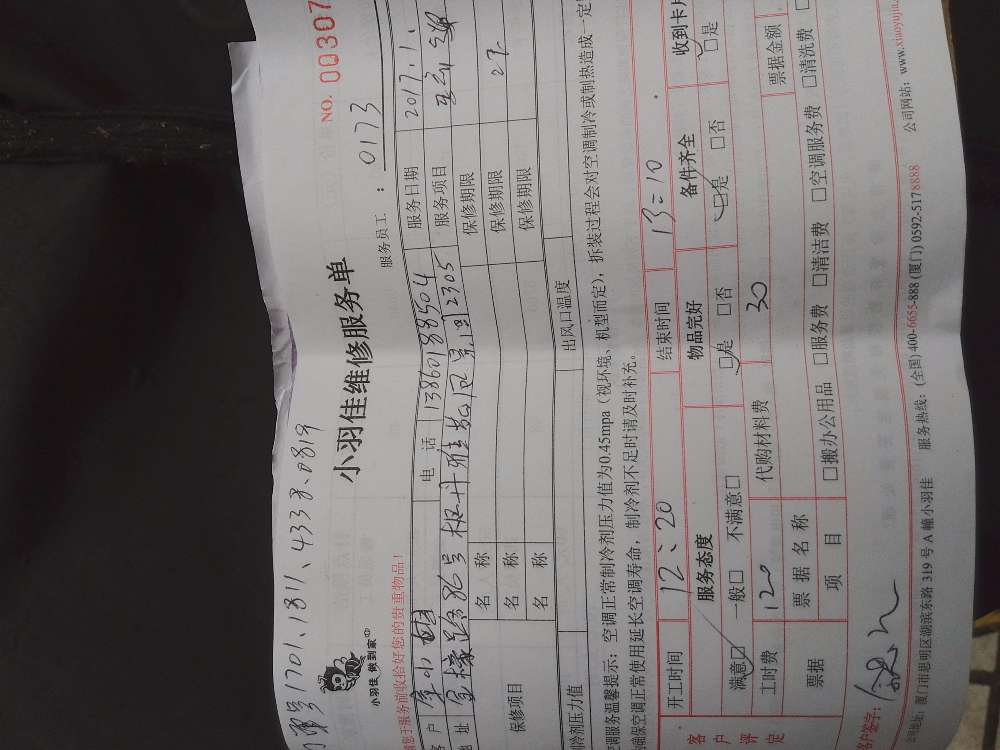 1701.1311.4338.0819
小羽佳 做到家
小羽佳维修服务单
NO. 00307
服务员工：0173
请您于服务前收拾好您的贵重物品！
客户 电话 13860188504 服务日期 2017.1.
地址 2305 服务项目
保修项目 名称 保修期限
名称 保修期限 27
名称 保修期限
制冷剂压力值 出风口温度
空调服务温馨提示：空调正常制冷剂压力值为0.45mpa（视环境、机型而定），拆装过程会对空调制冷或制热造成一定
确保空调正常使用延长空调寿命，制冷剂不足时请及时补充。
开工时间 12:20 结束时间 13:10
客户评定 服务态度 物品完好 备件齐全 收到卡片
满意□ 一般□ 不满意□ □是 □否 □是 □否 □是
工时费 120 代购材料费 30
票据 票据名称 票据金额
项目 □搬办公用品 □服务费 □清洁费 □空调服务费 □清洗费
客户签字：
公司地址：厦门市思明区湖滨东路319号A幢小羽佳 服务热线：(全国)400-6655-888 (厦门)0592-5178888 公司网站：www.xiaoyujia.